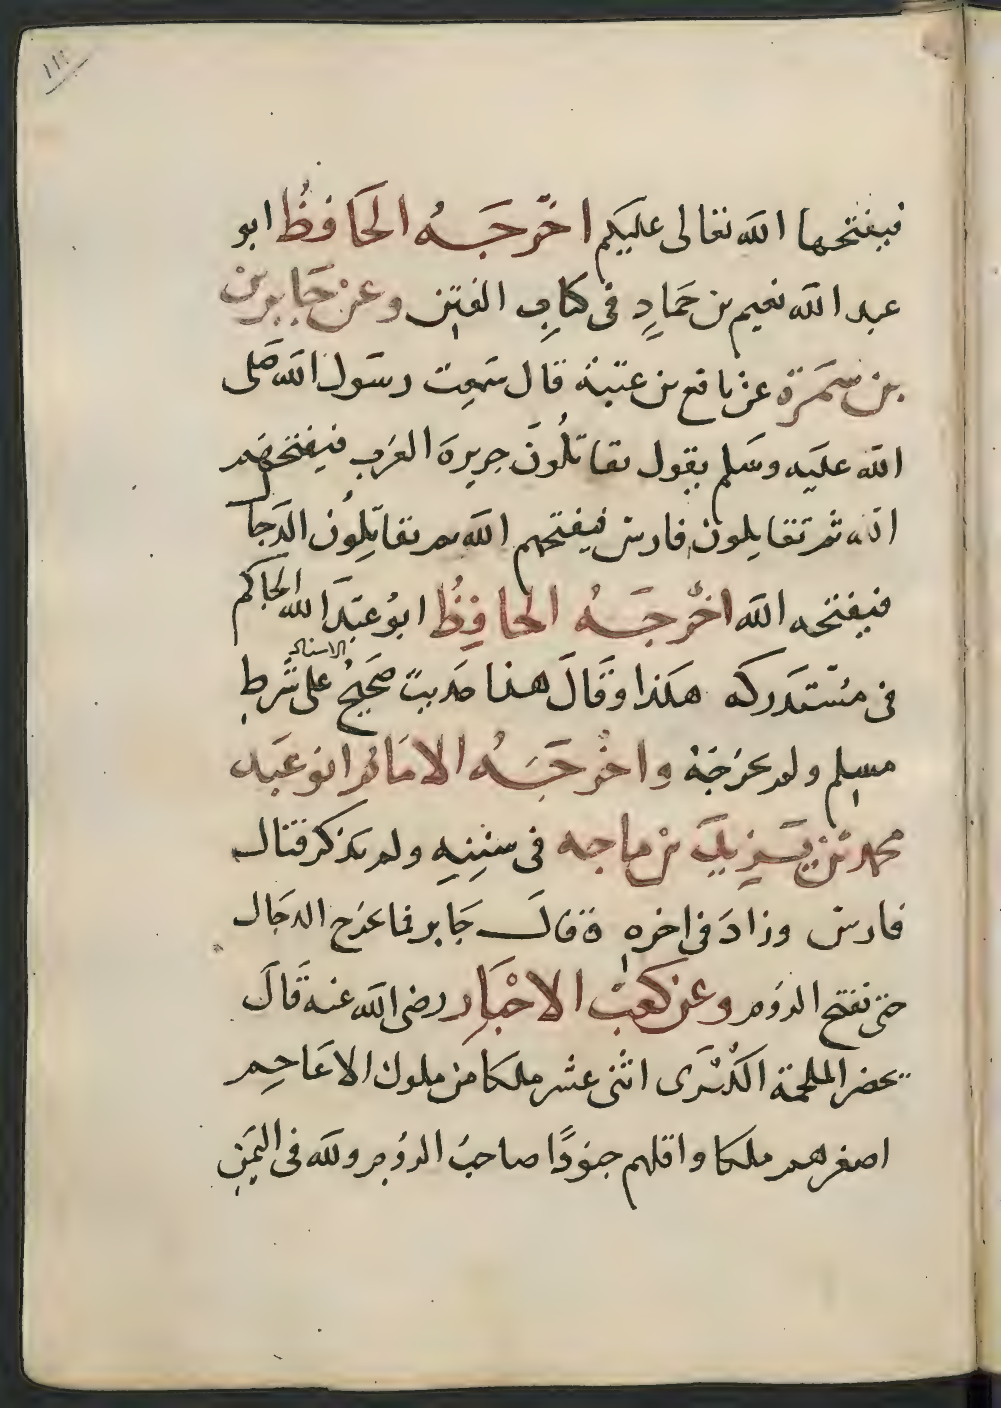 فيفتحها الله تعالى عليكم اخرجَهُ الحَافظُ ابو
عبد الله نعيم بن حمادٍ فى كتابِ الفتن وعن جابر بن
بن سمرة عن نافع بن عتبة قال سَمِعت رسَول الله صَلى
الله عليه وسَلم يقول تقاتلُونَ جزيرة العَرب فيفتحهم
الله ثم تقاتلون فارس فيفتحهم الله ثم تقاتِلُون الدَجا
فيفتحه الله اخرجَهُ الحافِظُ ابوُ عَبدَ الله الحاكم
فى مسُتدَركه هكذا وقَالَ هذا حَديث صَحيحُ الاسناد على شَرطِ
مسلم ولم يخرجَه واخرجَهُ الامَام ابو عبَد
محمد بن يَزيدَ بن ماجه فى سننِهِ ولم يذكر قتال
فارس وزادَ فى اخره قال جَابر فما يخرَج الدجَال
حتى تفتح الروُم وعن كعَب الاحْبَار رضى الله عنه قَالَ
يحضر الملحمة الكُبْرَى اثنى عشر ملكا من ملوك الاعَاجِم
اصغرهم ملكا واقلهم جنودًا صاحبُ الروُم ولله فى اليَمَن